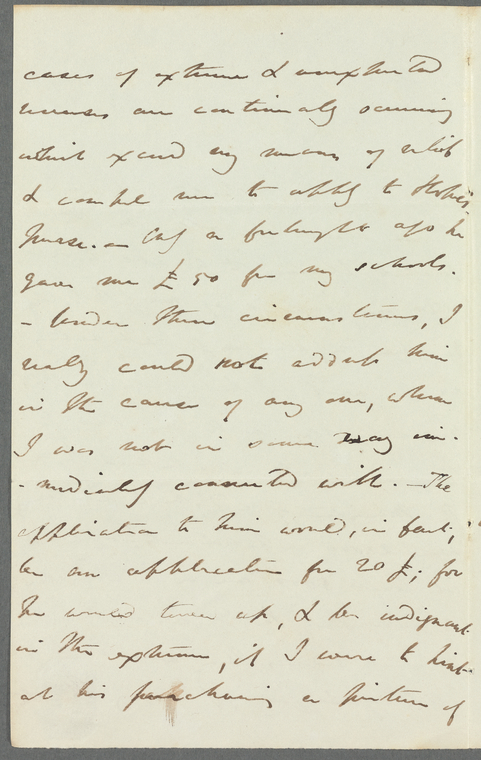 cases of extreme & unexpected
reverses are continually occurring
which exceed my means of relief
& compel me to apply to Hope's
purse. — Only a fortnight ago he
gave me £50 for my schools.
— Under these circumstances, I
really could not address him
in the cause of any one, whom
I was not in some way im-
-mediately connected with. — The
application to him would, in fact,
be an application for 20 £; for
he would turn up, & be indignant
in the extreme, if I were to hint
at his purchasing a picture of